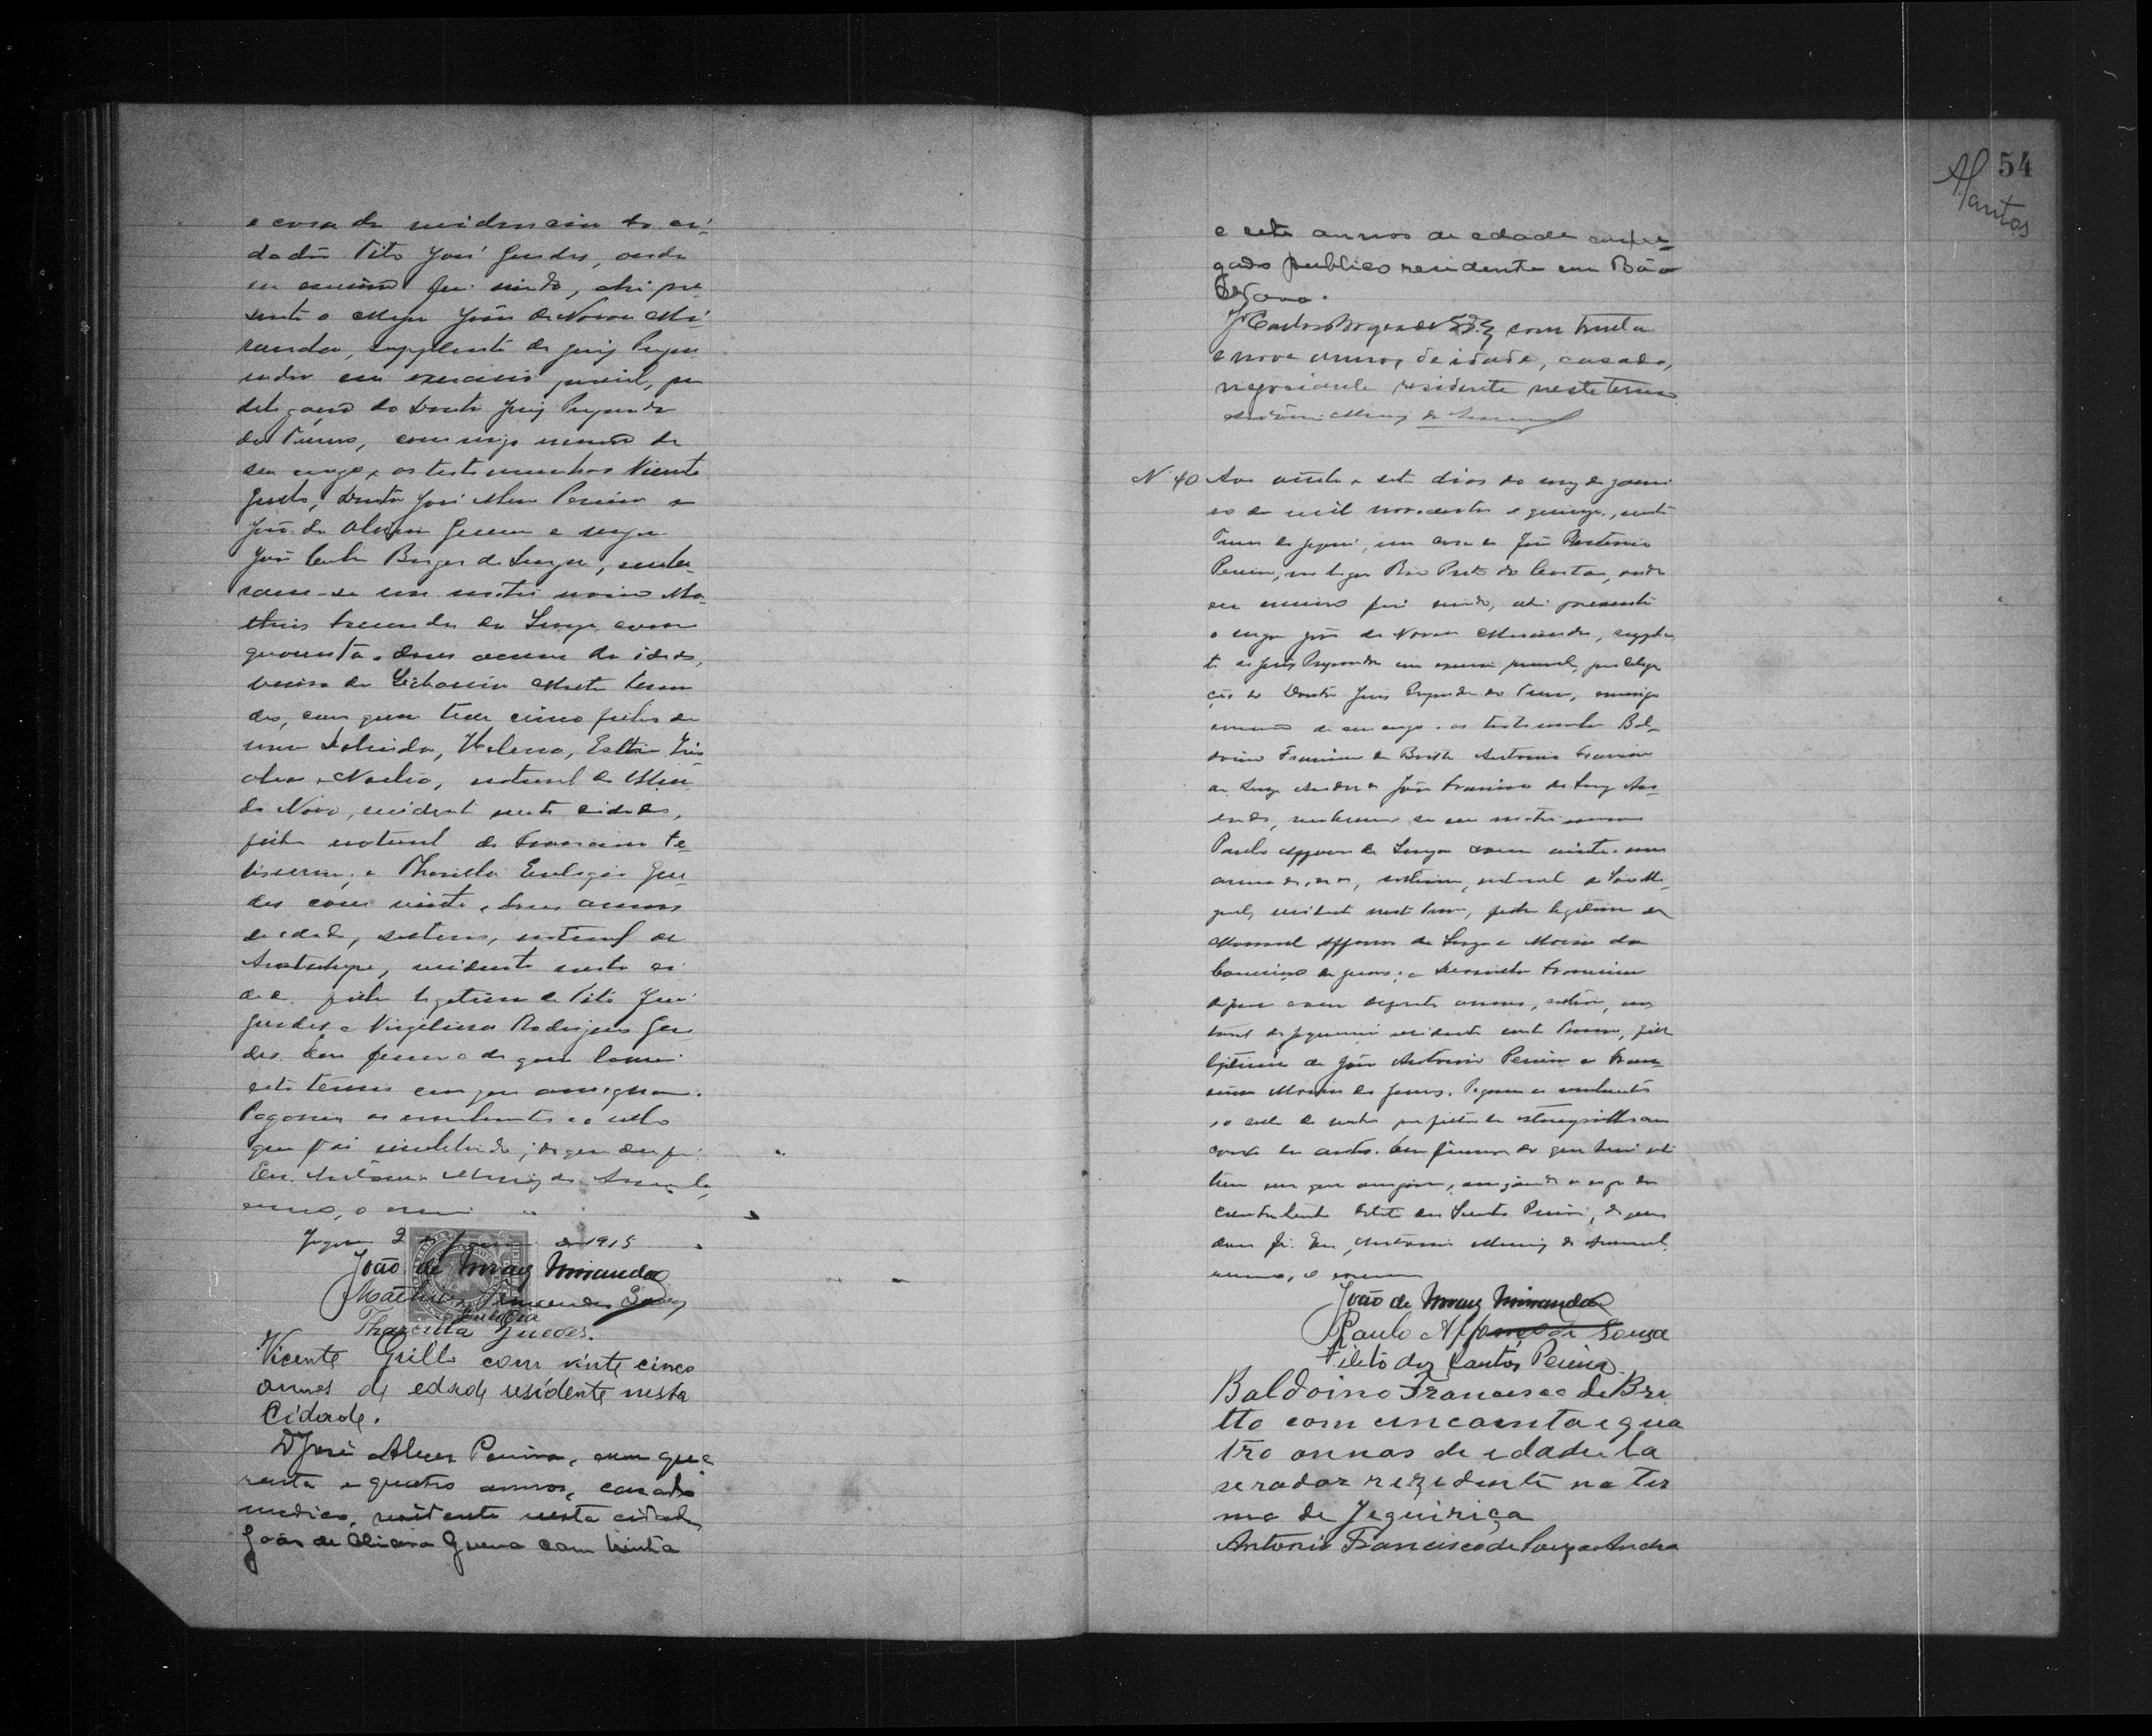 e casa da residencia do ci-
dadão Tito José Guedes, onde
eu escrivão fui vindo, ahi pre-
sente o Major João de Novaes Mi-
randa, supplente de Juiz Prepa-
rador em exercicio parcial, por
delegação do Doutor Juiz Preparador
do Termo, commigo escrivão de
seu cargo, e as testemunhas Vicente
Grillo, Doutor José Alves Pereira e
João de Oliveira Guerra e major
João Carlos Borges de Souza, recebe-
ram-se em matrimonio Ma-
theus Fernandes de Souza, com
quarenta e dous annos de idade,
viuvo de
des, com quem teve cinco filhos de
nome Helena, Esther
natural de
do Novo, residente nesta cidade,
filho natural de Francisca Fe-
lisserma; e Tharcilla Eulogia Gue-
des com vinte e dous annos
de edade, solteira, natural de
Aratuhype, residente nesta ci-
dade filha legitima de Tito José
Guedes e Virgilina Rodrigues Gue-
des. Em firmeza do que lavrei
este termo em que assignam.
Pagaram os emolumentos e o sello
que vai inutilisado; do que dou fé.
Eu, Antonio Muniz do Amaral,
escrivão, o escrevi
de 1915
João de Novaes Miranda
Matheus Fernandes Souza
Eulogia
Tharcilla Guedes.
Vicente Grillo com vinte cinco
annos de edade residente nesta
Cidade.
Dr José Alves Pereira, com qua-
renta e quatro annos, casado
medico, residente nesta cidade
João de Oliveira Guerra com trinta
54
e sete annos de edade empre-
gado publico residente em
Jo Carlos Borges de Sza com trinta
e nove annos de idade, casado,
negociante residente neste termo.
Antonio Muniz do Amaral
N 40 Aos vinte e sete dias do mez de Janei-
ro de mil novecentos e quinze, neste
Termo de em casa de João Antonio
Pereira, no lugar Rio Preto do onde
eu escrivão fui vindo, ahi presente
o major João de Novaes Miranda, supplen-
te de Juiz Preparador em exercicio parcial, por delega-
ção do Doutor Juiz Preparador do Termo, commigo
escrivão de seu cargo e as testemunhas Bal-
doino Francisco de Britto Antonio Francisco
de Souza Andrade e João Francisco de Souza An-
drade, receberam-se em matrimonio
Paulo Affonso de Souza com vinte e um
annos de idade, solteiro, natural de São Mi-
guel, residente neste termo, filho legitimo de
Manoel Affonso de Souza e Maria da
Conceição de Jesus; e Francisca
de Jesus com dezesete annos, solteira, na-
tural de residente neste Termo, filha
legitima de João Antonio Pereira e Fran-
cisca Maria de Jesus. Pagaram os emolumentos
e o sello de verba por falta de estampilha como
consta dos autos. Em firmeza do que lavrei este
termo em que assignam, assignando a rogo da
contrahente Fileto dos Santos Pereira, do que
dou fé. Eu, Antonio Muniz do Amaral,
escrivão, o escrevi
João de Novaes Miranda
Paulo Affonso de Souza
Fileto dos Santos Pereira
Baldoino Francisco de Bri
tto com cincoenta e qua
tro annos de idade la
verador rezidente no ter
mo de Jequiriça
Antonio Francisco de Souza Andra